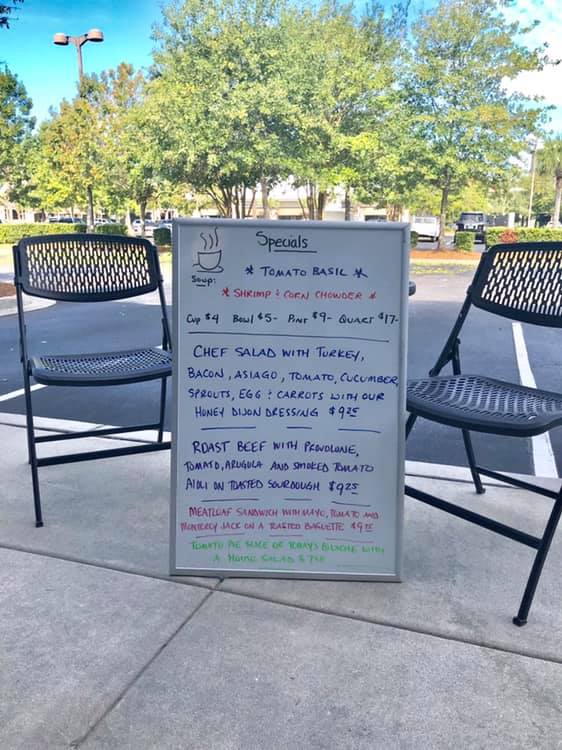 Specials
Soup:
* TOMATO BASIL *
* SHRIMP & CORN CHOWDER *
CUP $4 BOWL $5- PINT $9- QUART $17-
CHEF SALAD WITH TURKEY,
BACON, ASIAGO, TOMATO, CUCUMBER,
SPROUTS, EGG & CARROTS WITH OUR
HONEY DIJON DRESSING
ROAST BEEF WITH PROVOLONE,
TOMATO, ARUGULA AND SMOKED TOMATO
AIOLI ON TOASTED SOURDOUGH $9.25
MEATLOAF SANDWICH WITH MAYO, TOMATO AND
MONTEREY JACK ON A TOASTED BAGUETTE
TOMATO PIE SLICE OR TODAY'S QUICHE WITH
A HOUSE SALAD